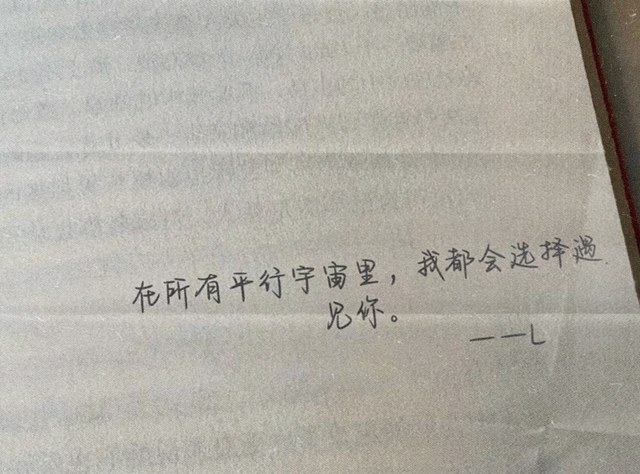 在所有平行宇宙里，我都会选择遇
见你。
——L